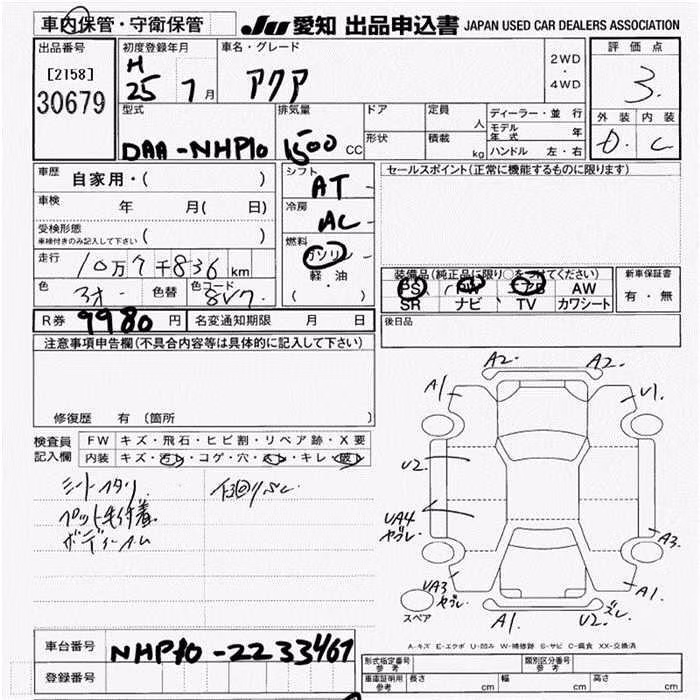 車内保管・守衛保管
JU 愛知 出品申込書 JAPAN USED CAR DEALERS ASSOCIATION
出品番号 初度登録年月 車名・グレード 評価点
[2158] H 2WD
30679 25 7月 アクア ・ 3.
4WD
型式 排気量 ドア 定員 人 ディーラー・並行 外装 内装
モデル年式 年
DAA-NHP10 1500 CC 形状 積載 kg ハンドル 左・右 D. C
車歴 自家用・( ) シフト AT セールスポイント(正常に機能するものに限ります)
車検 年 月( 日) 冷房 AC
受検形態
車検付きのみ記入して下さい ( ) 燃料 ガソリン
走行 10万7千836km 軽・油 装備品(純正品に限り○をつけてください) 新車保証書
色 色替 色コード 8V7 ( ) PS PW AW 有・無
SR ナビ TV カワシート
R券 9980円 名変通知期限 月 日 後日品
注意事項申告欄(不具合内容等は具体的に記入して下さい)
A2. A2.
A1 U1.
修復歴 有 (箇所 )
検査員 FW キズ・飛石・ヒビ割・リペア跡・X要
記入欄 内装 キズ・汚れ・コゲ・穴・スレ・キレ・破レ
U2.
シートスタリ 下回りサビ
ペット毛付着 UA4
ボディー ヤブレ
A3.
UA3 ヤブレ A1.
スペア A1. U2. ズレ
A-キズ E-エクボ U-凹み W-補修跡 S-サビ C-腐食 XX-交換済
車台番号 NHP10-2233467
登録番号
形式指定番号 参考 類別区分番号 参考
車庫証明用 参考 長さ cm 幅 cm 高さ cm